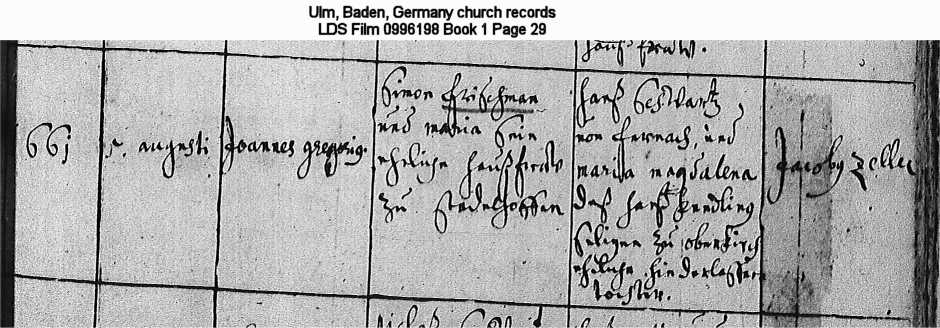 Ulm, Baden, Germany church records
LDS Film 0996198 Book 1 Page 29
hauß fraw.
661
5. augusti
Joannes gregorig.
Simon Frischman
und maria sein
eheliche haußfraw
zu stadelhoffen
hanß Schwartz
von Ernach, und
maria magdalena
deß hanß
seligen zu oberkirch
eheliche hinderlassene
tochter.
Jacoby Zeller